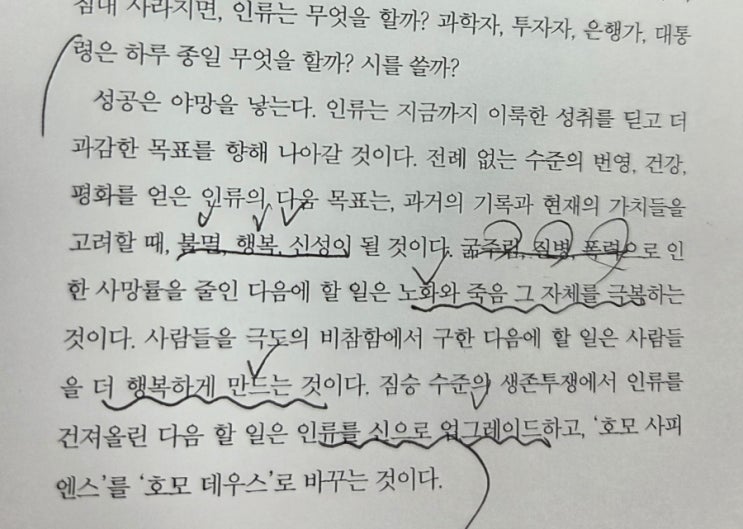 침내 사라지면, 인류는 무엇을 할까? 과학자, 투자자, 은행가, 대통
령은 하루 종일 무엇을 할까? 시를 쓸까?
성공은 야망을 낳는다. 인류는 지금까지 이룩한 성취를 딛고 더
과감한 목표를 향해 나아갈 것이다. 전례 없는 수준의 번영, 건강,
평화를 얻은 인류의 다음 목표는, 과거의 기록과 현재의 가치들을
고려할 때, 불멸, 행복, 신성이 될 것이다. 굶주림, 질병, 폭력으로 인
한 사망률을 줄인 다음에 할 일은 노화와 죽음 그 자체를 극복하는
것이다. 사람들을 극도의 비참함에서 구한 다음에 할 일은 사람들
을 더 행복하게 만드는 것이다. 짐승 수준의 생존투쟁에서 인류를
건져올린 다음 할 일은 인류를 신으로 업그레이드하고, ‘호모 사피
엔스’를 ‘호모 데우스’로 바꾸는 것이다.